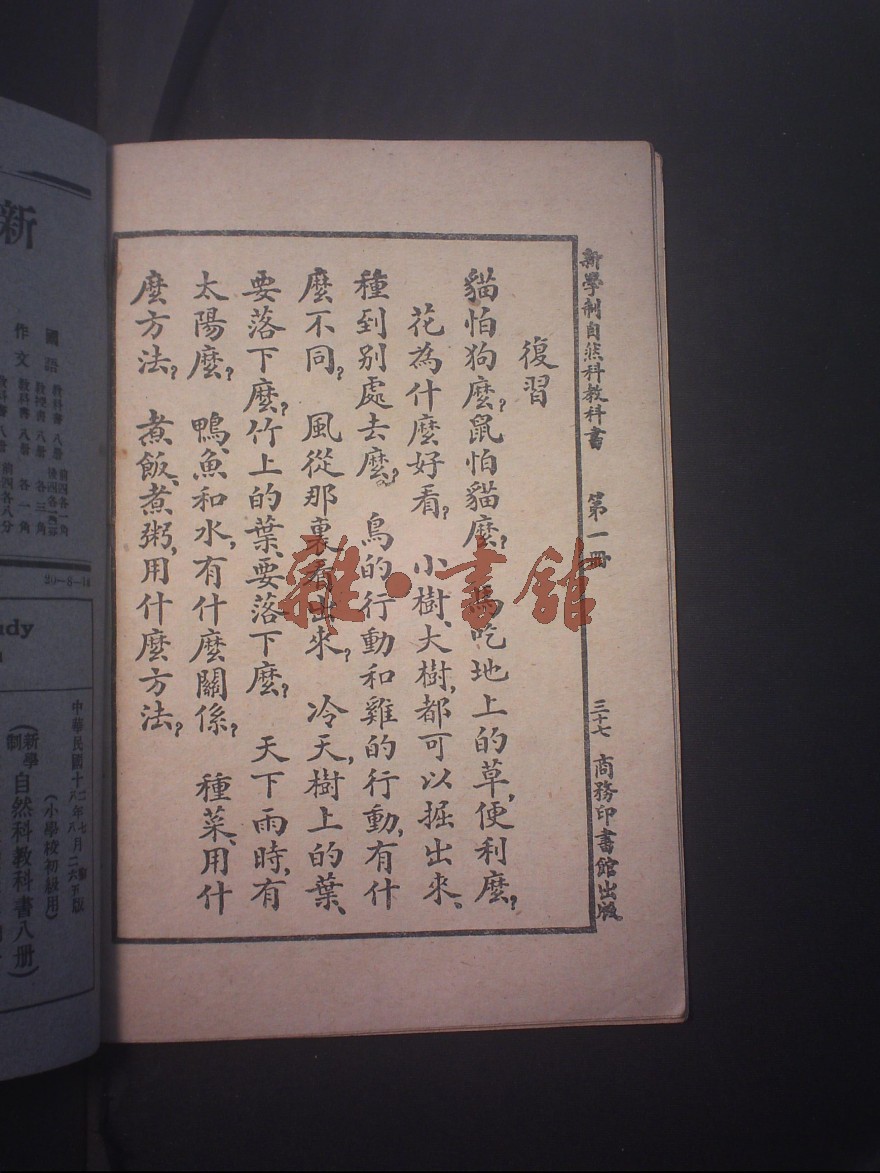 新學制自然科教科書 第一冊 三十七 商務印書館出版
復習
貓怕狗麼?鼠怕貓麼?馬吃地上的草,便利麼?
花為什麼好看?小樹、大樹,都可以掘出來、
種到别處去麼。鳥的行動和雞的行動,有什
麼不同?風從那裏看出來?冷天,樹上的葉、
要落下麼?竹上的葉、要落下麼?天下雨時,有
太陽麼?鴨、魚和水,有什麼關係?種菜、用什
麼方法?煮飯、煮粥,用什麼方法?
雜·書館
新
國語
教科書 八册
教授書 八册 各三角
作文 教科書 八册 各一角
20-8-14
中華民國十
(小學校初級用)
(新學制自然科教科書八册)